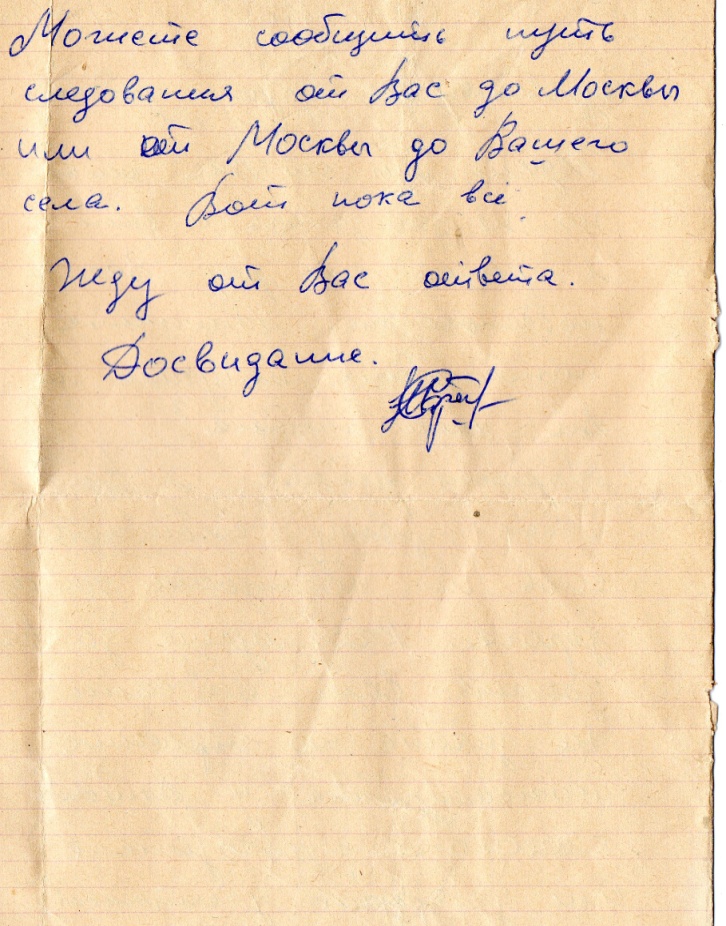 Можете сообщить путь
следования от Вас до Москвы
или от Москвы до Вашего
села. Вот пока всё.
Жду от Вас ответа.
Досвидание.